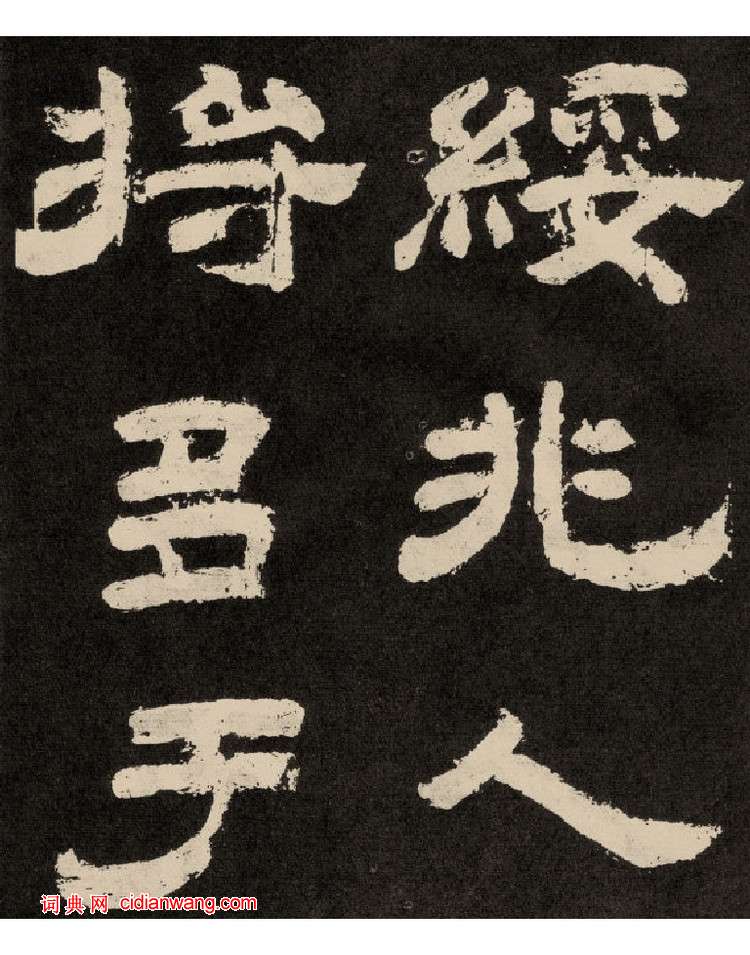 綏兆人
將多于
词典网 cidianwang.com